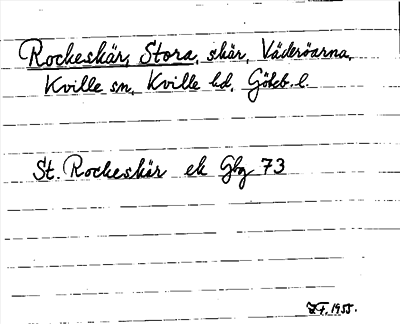 Rockeskär, Stora, skär, Väderöarna,
Kville sn, Kville hd, Göteb. l.
St. Rockeskär ek Gbg 73
1955.